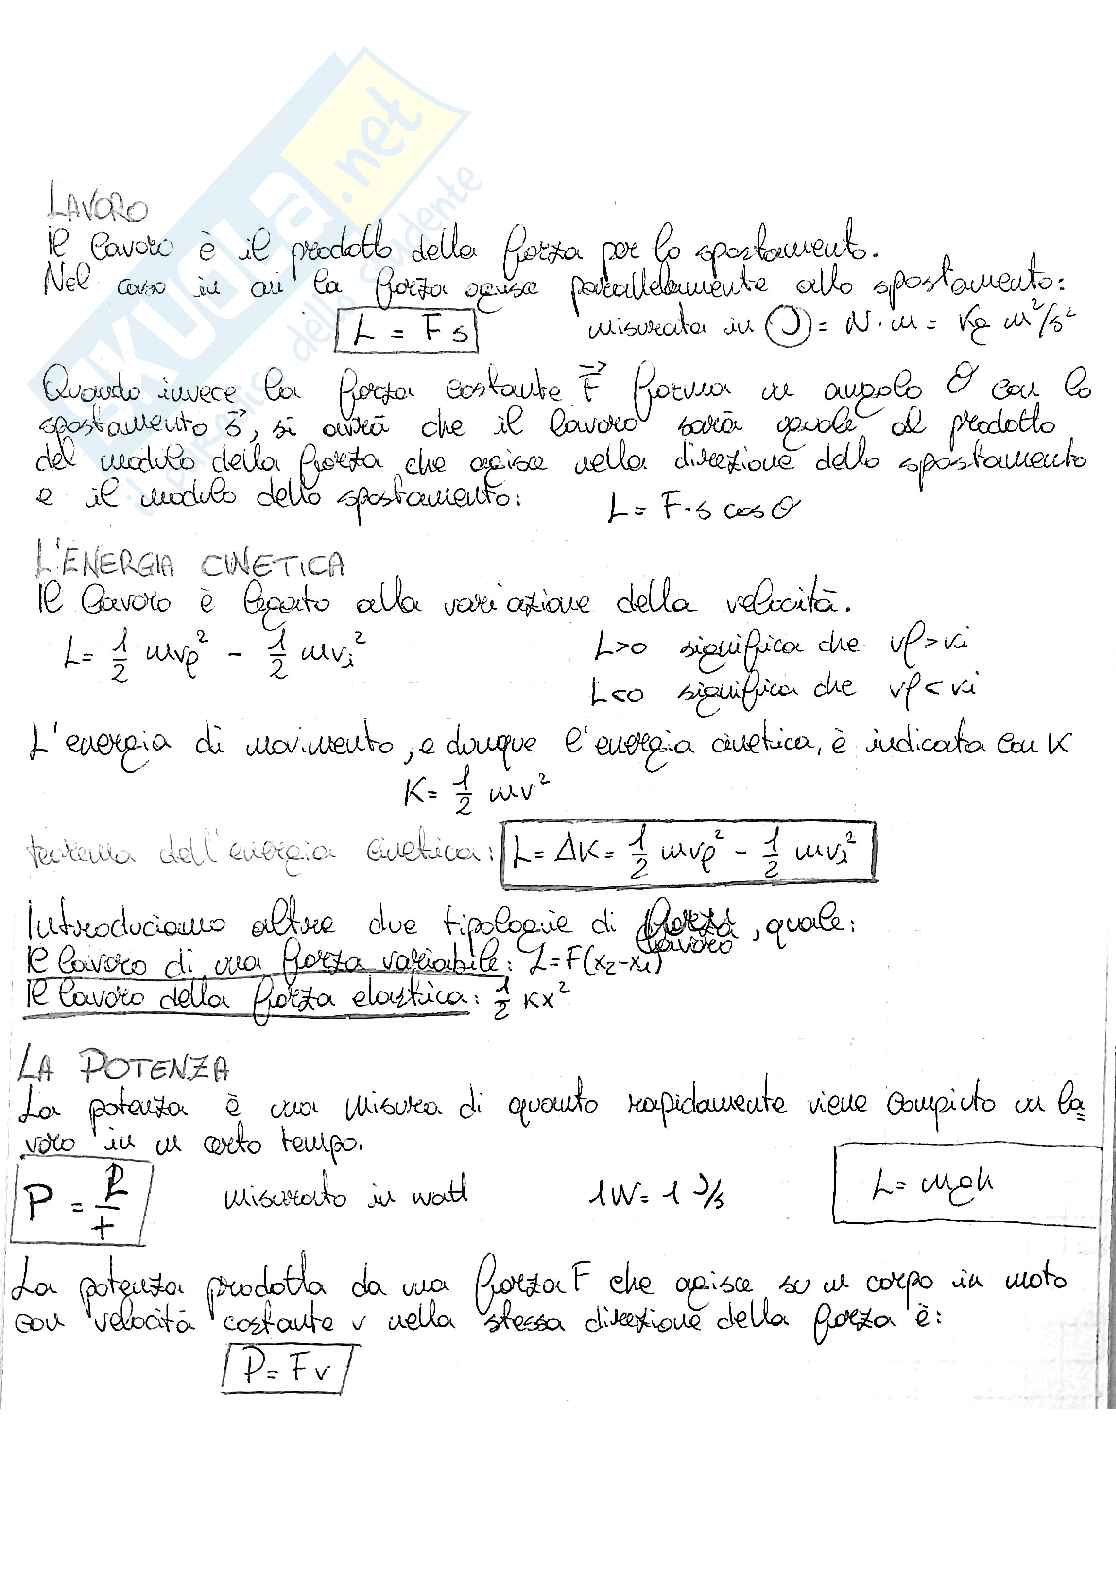 SKUOLA.net
il paradiso dello studente
LAVORO
Il lavoro è il prodotto della forza per lo spostamento.
Nel caso in cui la forza agisce parallelamente allo spostamento:
L = F s
misurata in (J) = N·m = Kg m²/s²
Quando invece la forza costante F⃗ forma un angolo θ con lo
spostamento s⃗, si avrà che il lavoro sarà uguale al prodotto
del modulo della forza che agisce nella direzione dello spostamento
e il modulo dello spostamento:
L = F·s cos θ
L'ENERGIA CINETICA
Il lavoro è legato alla variazione della velocità.
L= 1/2 mvf² - 1/2 mvi²
L>0 significa che vf > vi
L<0 significa che vf < vi
L'energia di movimento, e dunque l'energia cinetica, è indicata con K
K= 1/2 mv²
teorema dell'energia cinetica: L= ΔK= 1/2 mvf² - 1/2 mvi²
Introduciamo altre due tipologie di lavoro, quale:
Il lavoro di una forza variabile: L=F(x2-x1)
Il lavoro della forza elastica: 1/2 Kx²
LA POTENZA
La potenza è una misura di quanto rapidamente viene compiuto un la=
voro in un certo tempo.
P = L/t
misurato in watt
1W = 1 J/s
L= mgh
La potenza prodotta da una forza F che agisce su un corpo in moto
con velocità costante v nella stessa direzione della forza è:
P= Fv